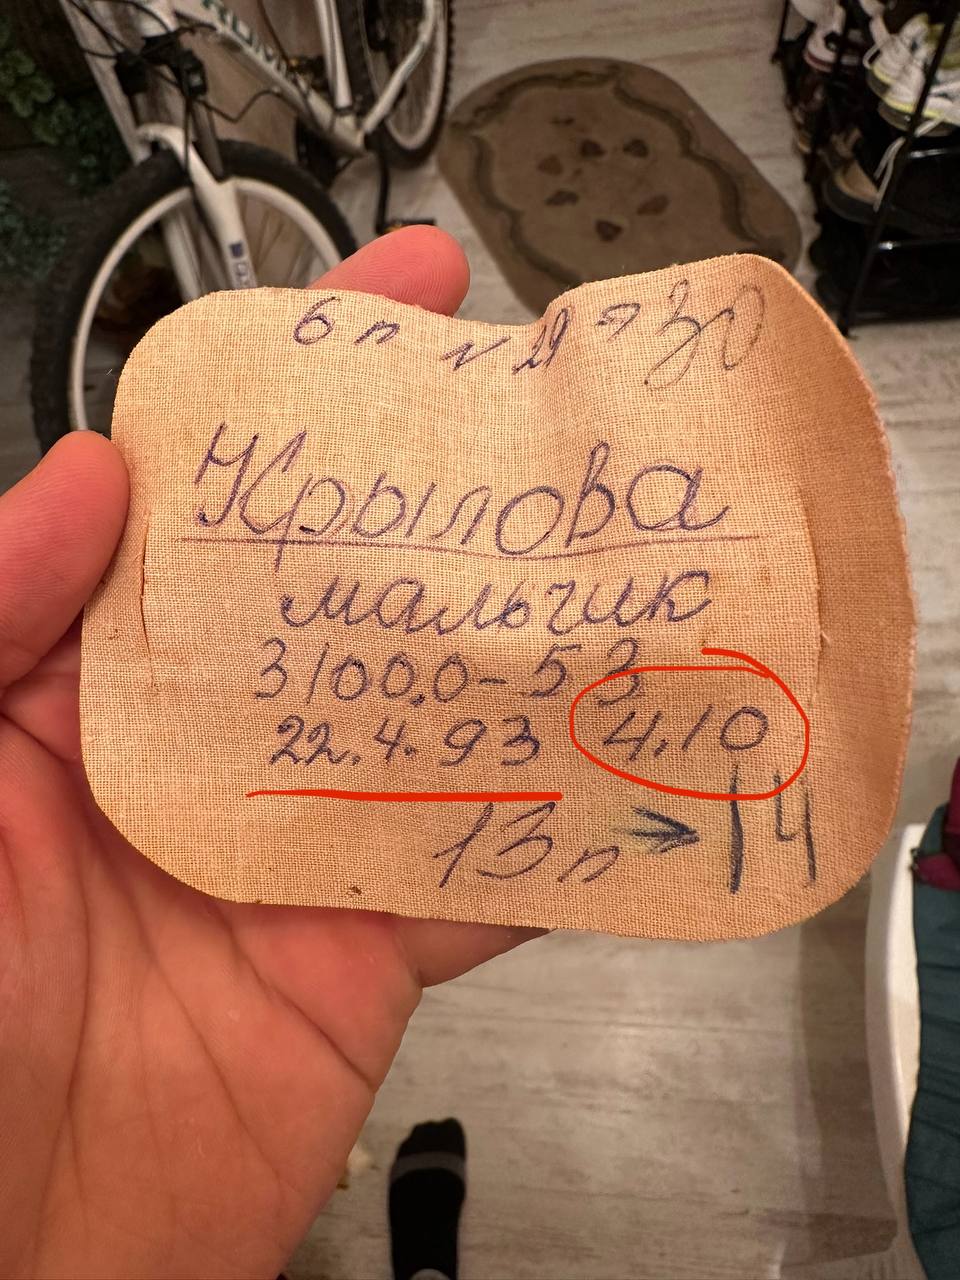 6 п № 29 → 30
Крылова
мальчик
3100,0 - 53
22.4.93 4.10
13 п → 14